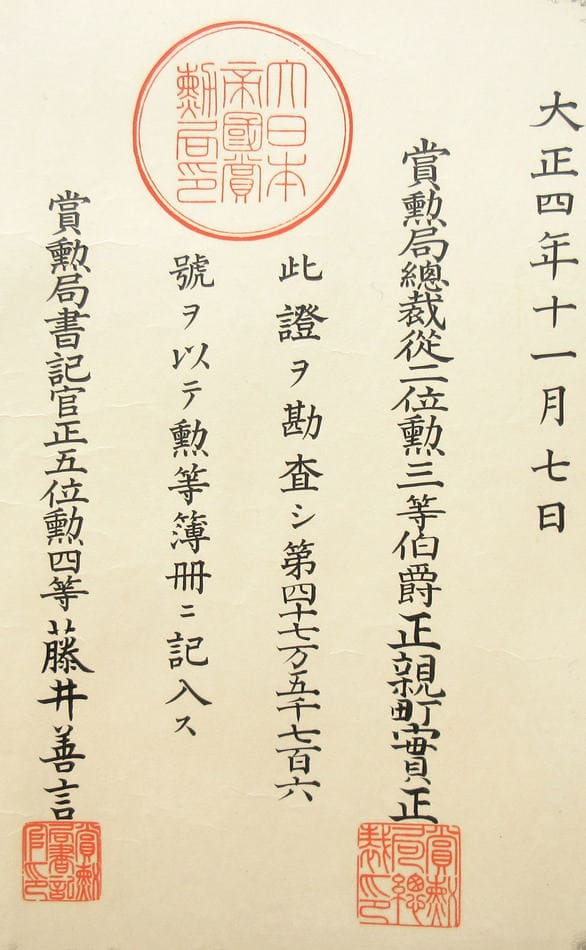 大正四年十一月七日
賞勲局總裁從二位勲三等伯爵正親町實正
此證ヲ勘査シ第四十七万五千七百六
號ヲ以テ勲等簿册ニ記入ス
賞勲局書記官正五位勲四等藤井善言
大日本帝國賞勲局印
賞勲局總裁印
賞勲局書記官印